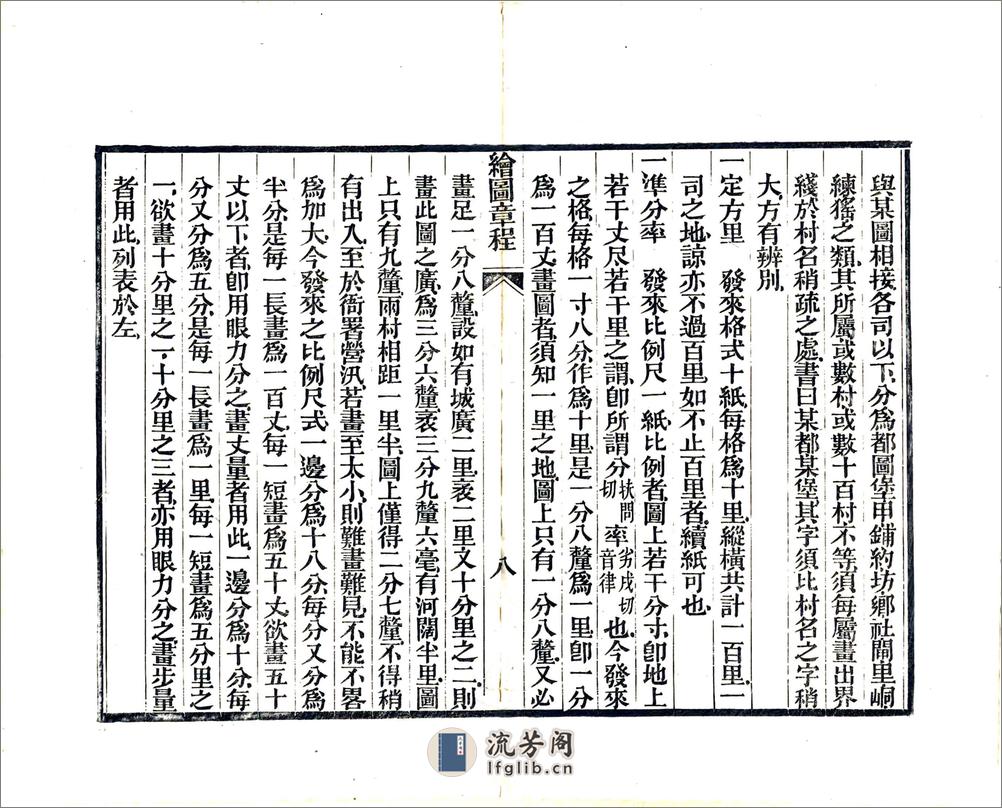 與某圖相接各司以下分爲都圖堡甲鋪約坊鄉社關里峒
練猺之類其所屬或數村或數十百村不等須每屬畫出界
綫於村名稍疏之處書曰某都某堡其字須比村名之字稍
大方有辨別
一定方里　發來格式十紙每格爲十里縱橫共計一百里一
司之地諒亦不過百里如不止百里者續紙可也
一準分率　發來比例尺一紙比例者圖上若干分寸卽地上
若干丈尺若干里之謂卽所謂分扶問切率劣戌切音律也今發來
之格每格一寸八分作爲十里是一分八釐爲一里卽一分
爲一百丈畫圖者須知一里之地圖上只有一分八釐又必
繪圖章程
八
畫足一分八釐設如有城廣二里袤二里又十分里之二則
畫此圖之廣爲三分六釐袤三分九釐六毫有河闊半里圖
上只有九釐兩村相距一里半圖上僅得二分七釐不得稍
有出入至於衙署營汛若畫至太小則難畫難見不能不畧
爲加大今發來之比例尺式一邊分爲十八分每分又分爲
半分是每一長畫爲一百丈每一短畫爲五十丈欲畫五十
丈以下者卽用眼力分之畫丈量者用此一邊分爲十分每
分又分爲五分是每一長畫爲一里每一短畫爲五分里之
一欲畫十分里之一十分里之三者亦用眼力分之畫步量
者用此列表於左
流芳阁
lfglib.cn